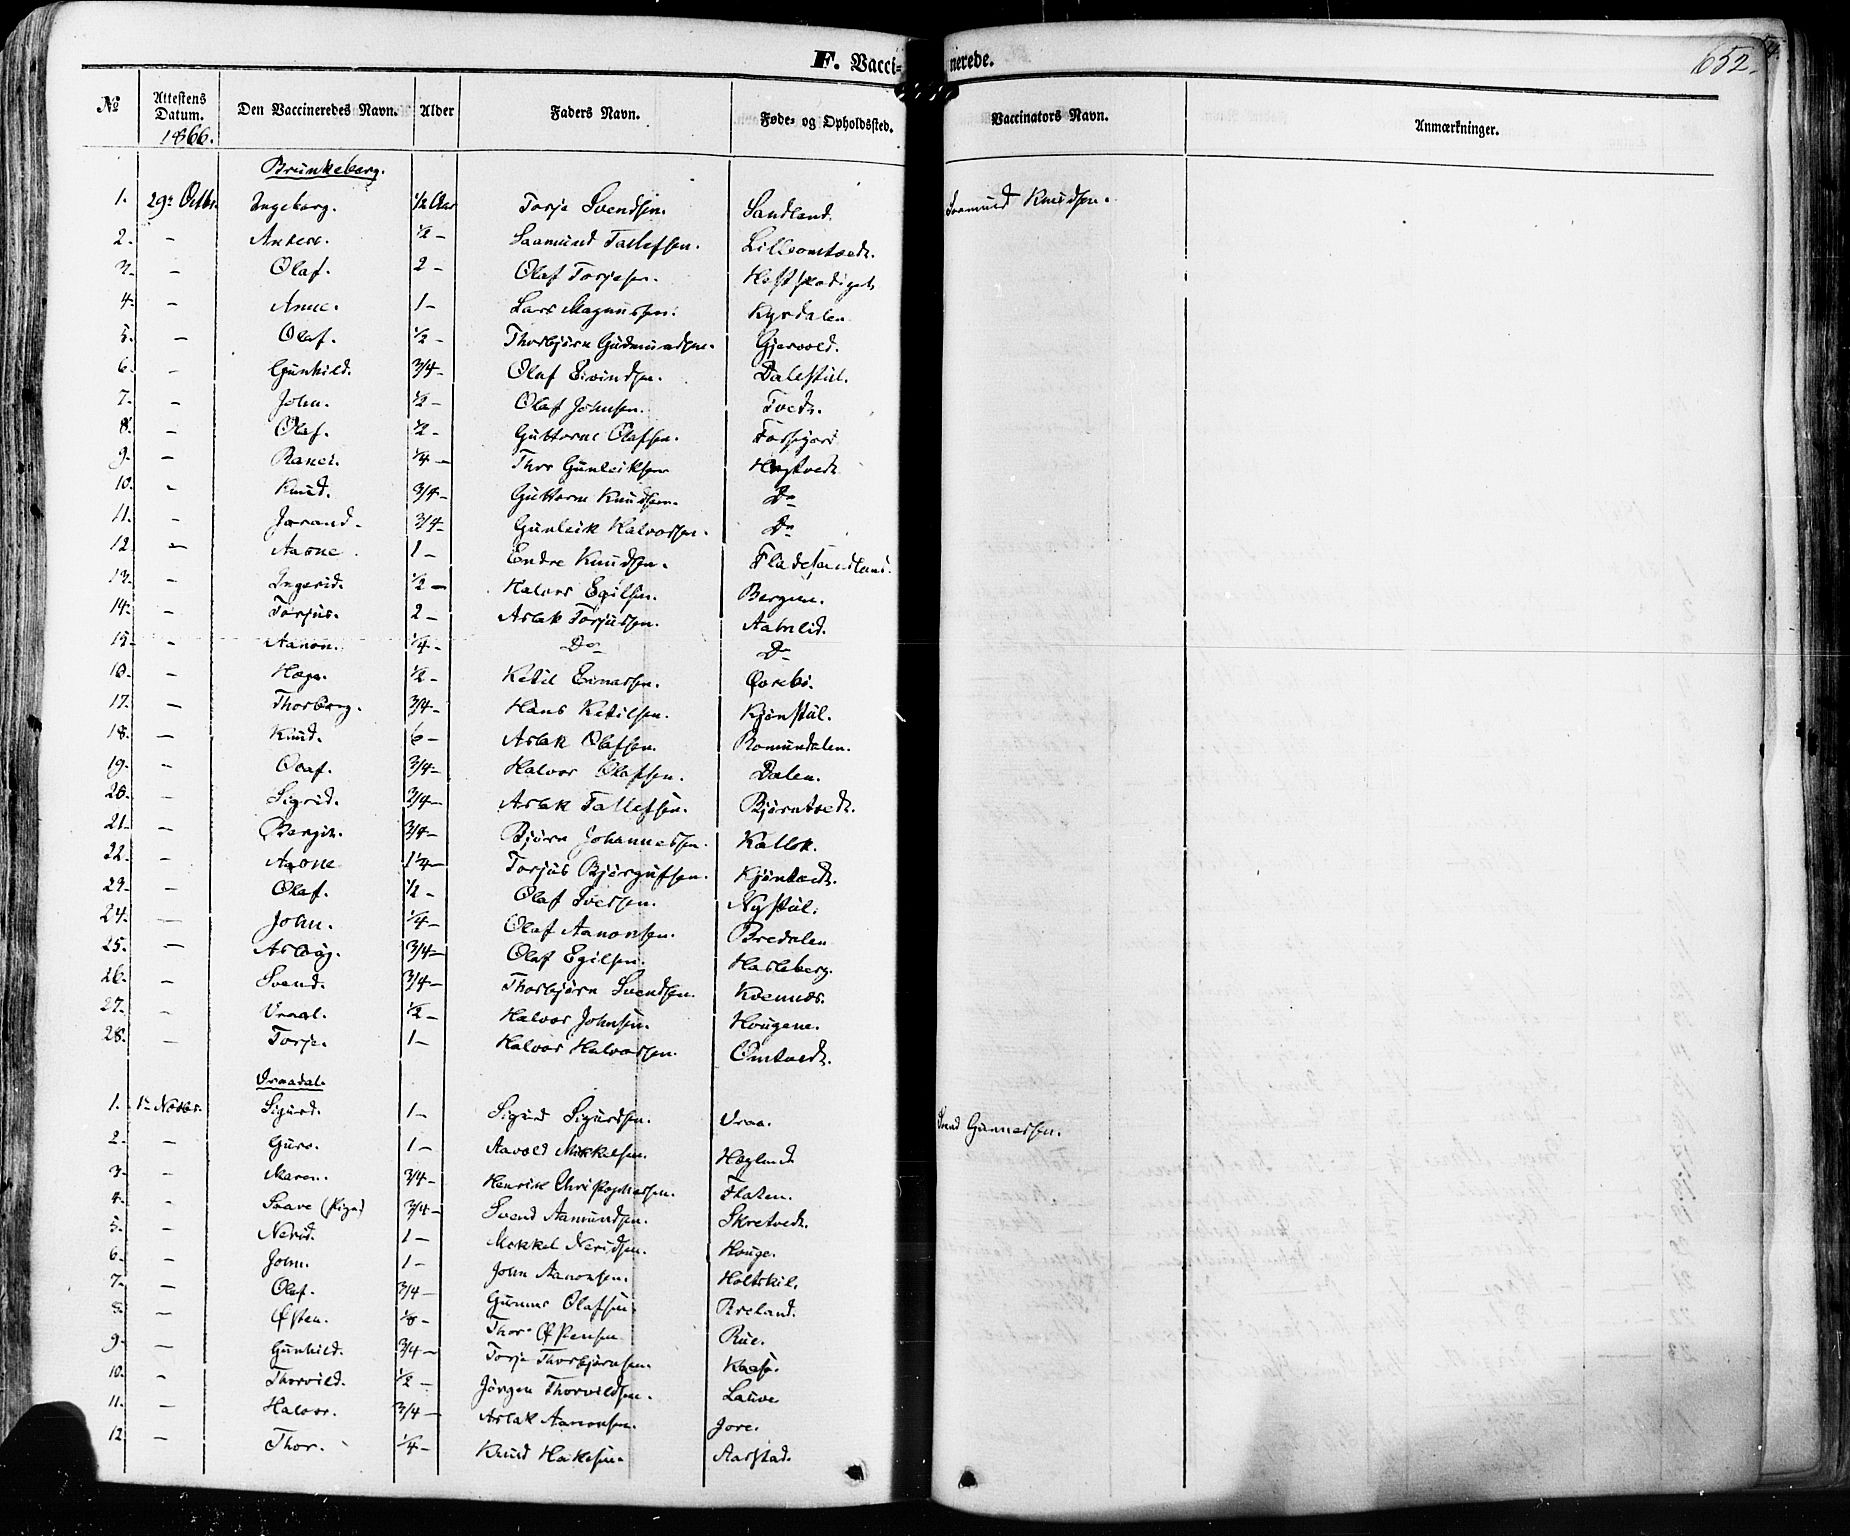 F. Vaccinerede.
652.
№ Attestens Datum. Den Vaccineredes Navn. Alder Faders Navn. Føde- og Opholdssted. Vaccinators Navn. Anmærkninger.
1866.
Brunkeberg.
1. 29. Octbr. Ingeborg. 1/2 Aar Torje Svendsen. Sandland. Saamund Knudsen.
2. – 1/2 – Saamund Tallefsen.
3. – Olaf. 2 – Olaf Torjesen.
4. – Anne. 1 – Lars Magnussen. Kyrdalen
5. – Olaf. 1/2 – Thorbjørn Gudmundsen. Gjervold.
6. – Gunhild. 3/4 – Olaf Eivindsen. Dalestul.
7. – John. 1/2 – Olaf Johnsen. Tvedt.
8. – Olaf. 1/2 – Guttorm Olafsen.
9. – 1/4 – Thor Gunleiksen
10. – Knud. 3/4 – Guttorm Knudsen. Do
11. – Jorand. 3/4 – Gunleik Halvorsen. Do
12. – Aasne. 1 – Endre Knudsen.
13. – Ingerid. 1/2 – Halvor Egilsen. Bergene.
14. – Torjus. 2 – Aslak Torjussen.
15. – Aanon. 1/4 – Do Do
16. – Hæge. 1/2 – Ketil Øvrebø.
17. – Thorborg. 3/4 – Hans Ketilsen. Kjønstul.
18. – Knud. 6 – Aslak Olafsen. Romundalen.
19. – Olaf. 3/4 – Halvor Olafsen. Dalen.
20. – Sigrid. 3/4 – Aslak Tallefsen. Bjørntvedt.
21. – Bergit. 3/4 – Bjørn Johannessen. Kallok.
22. – Aasne 1 1/4 – Torjus Bjørgufsen. Kjøntvedt.
23. – Olaf. 1/2 – Olaf Iversen. Nystul.
24. – John. 1/4 – Olaf Aanonsen. Bredalen
25. – Aslaug. 3/4 – Olaf Egilsen. Hasleberg.
26. – Svend. 3/4 – Thorbjørn Svendsen. Kvennos.
27. – Vraal. 1/2 – Halvor Johnsen. Hougene.
28. – Torje. 1 – Halvor Halvorsen. Omtvedt.
Vraadal.
1. 1. Novbr. Sigurd. 1 – Sigurd Sigurdsen. Vraa. Svend Gunnersen.
2. – Guro. 1 – Aavold Mikkelsen. Hæglund
3. – Maren. 3/4 – Henrik Christophersen. Flaten.
4. – Saave (Pige) 3/4 – Svend Aamundsen. Skretvedt.
5. – Nerid. 1 – Mikkel Neridsen. Houge.
6. – John. 1 – John Aanonsen. Holtskil.
7. – Olaf. 3/4 – Gunnar Olafsen. Breland.
8. – Østen. 1/8 – Thor Østensen Rue.
9. – Gunhild. 3/4 – Torje Thorbjørnsen. Kaasa.
10. – Thorvild. 1/2 – Jørgen Thorvildsen. Lauve
11. – Halvor. 3/4 – Aslak Aanonsen. Jore.
12. – Thor. 1/4 – Knud Aarstad.